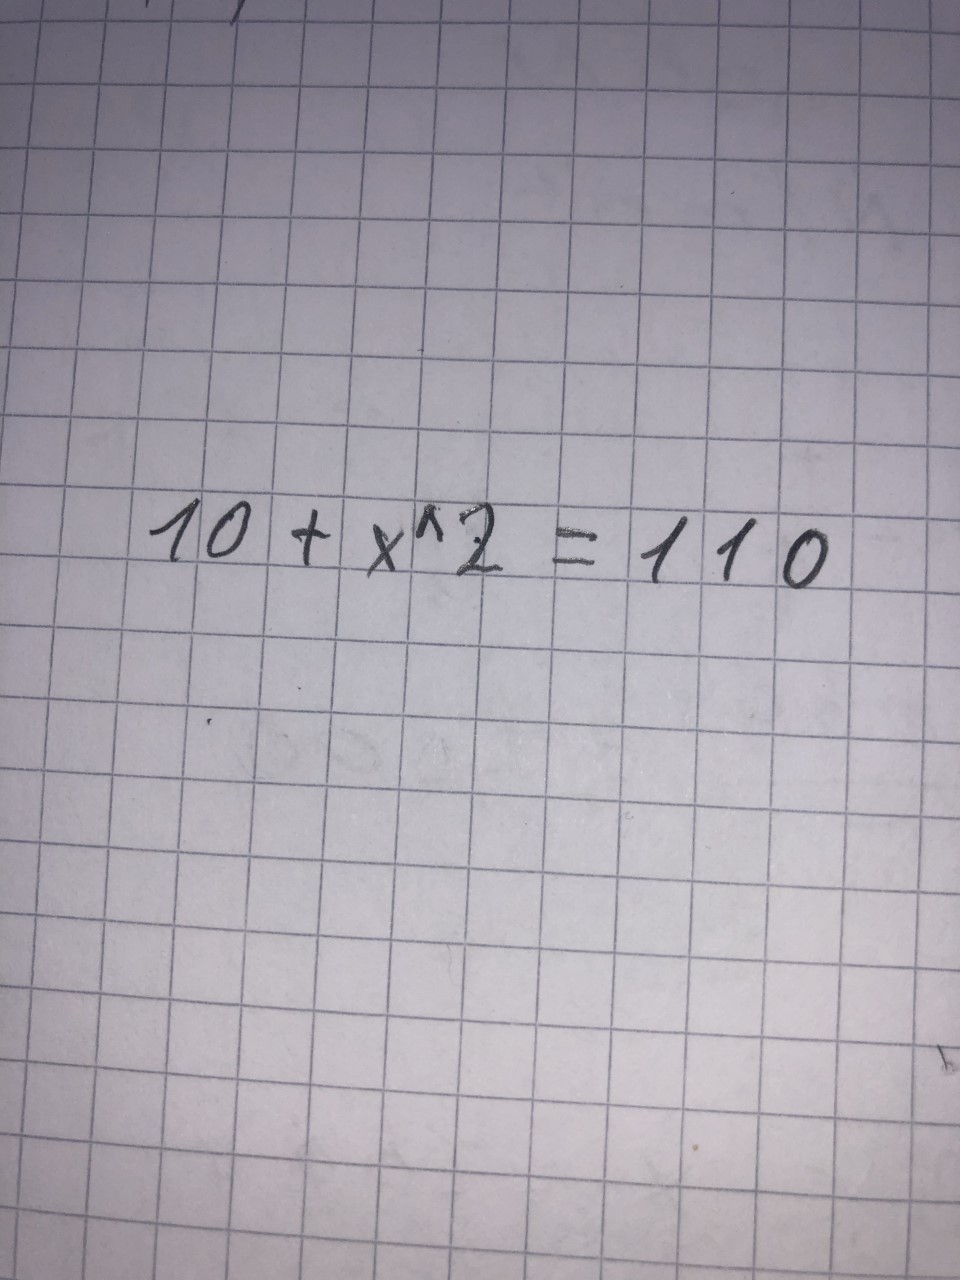 10 + x^2 = 110